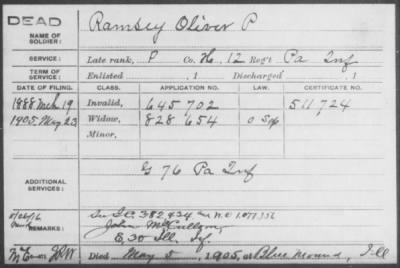 DEAD
NAME OF SOLDIER: Ramsey Oliver P
SERVICE: Late rank, P Co. H, 12 Reg't Pa Inf
TERM OF SERVICE: Enlisted , 1 Discharged , 1
DATE OF FILING. CLASS. APPLICATION NO. LAW. CERTIFICATE NO.
1888 Mch 19 Invalid, 645 702 511 724
1905 May 23 Widow, 828 654
Minor,
ADDITIONAL SERVICES: G 76 Pa Inf
REMARKS: John McCullom,
E, 30 Ill. Inf.
Died May 5, 1905, at Blue Mound, Ill